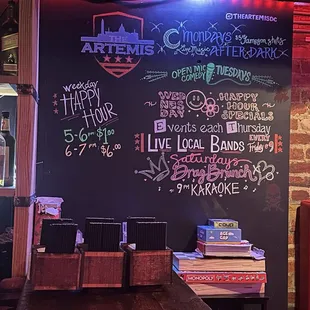 @THEARTEMISDC
THE
ARTEMIS
MONDAYS
Live Music
AFTER DARK
OPEN MIC
COMEDY
TUESDAYS
weekday
HAPPY
HOUR
5-6 PM $
6-7 PM $6
WED
NES
DAY
HAPPY
HOUR
SPECIALS
Events each Thursday
LIVE LOCAL BANDS
EVERY
Friday @9
Saturdays
Drag Brunch
9PM KARAOKE
MONOPOLY